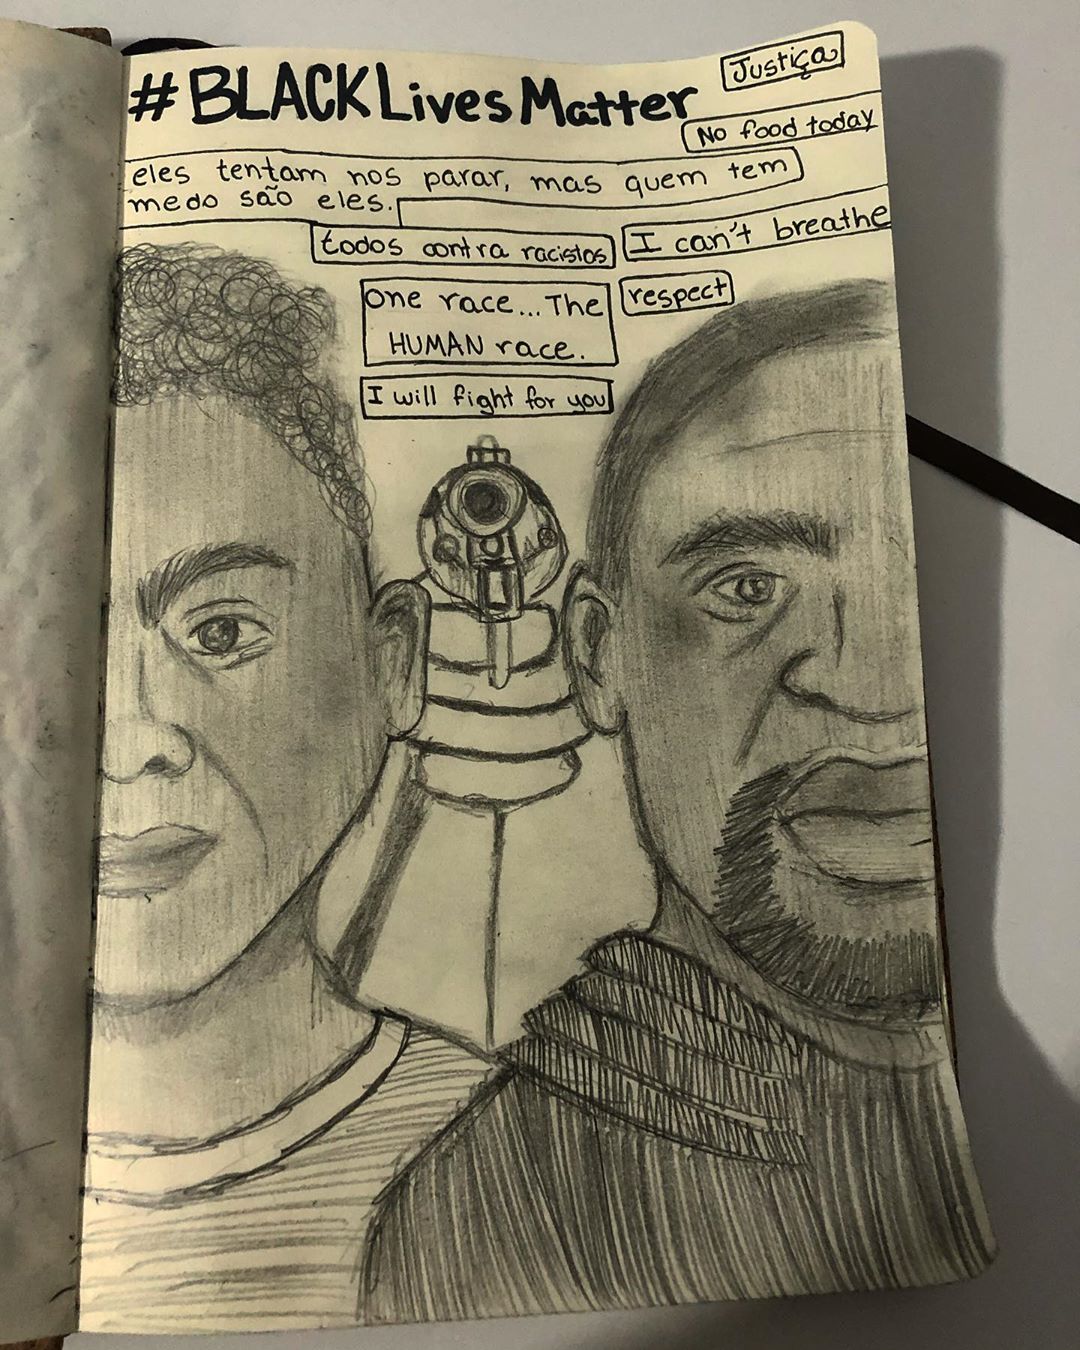 #BLACKLivesMatter
Justiça
No food today
eles tentam nos parar, mas quem tem
medo são eles.
todos contra racistas
I can't breathe
one race...The
HUMAN race.
respect
I will fight for you